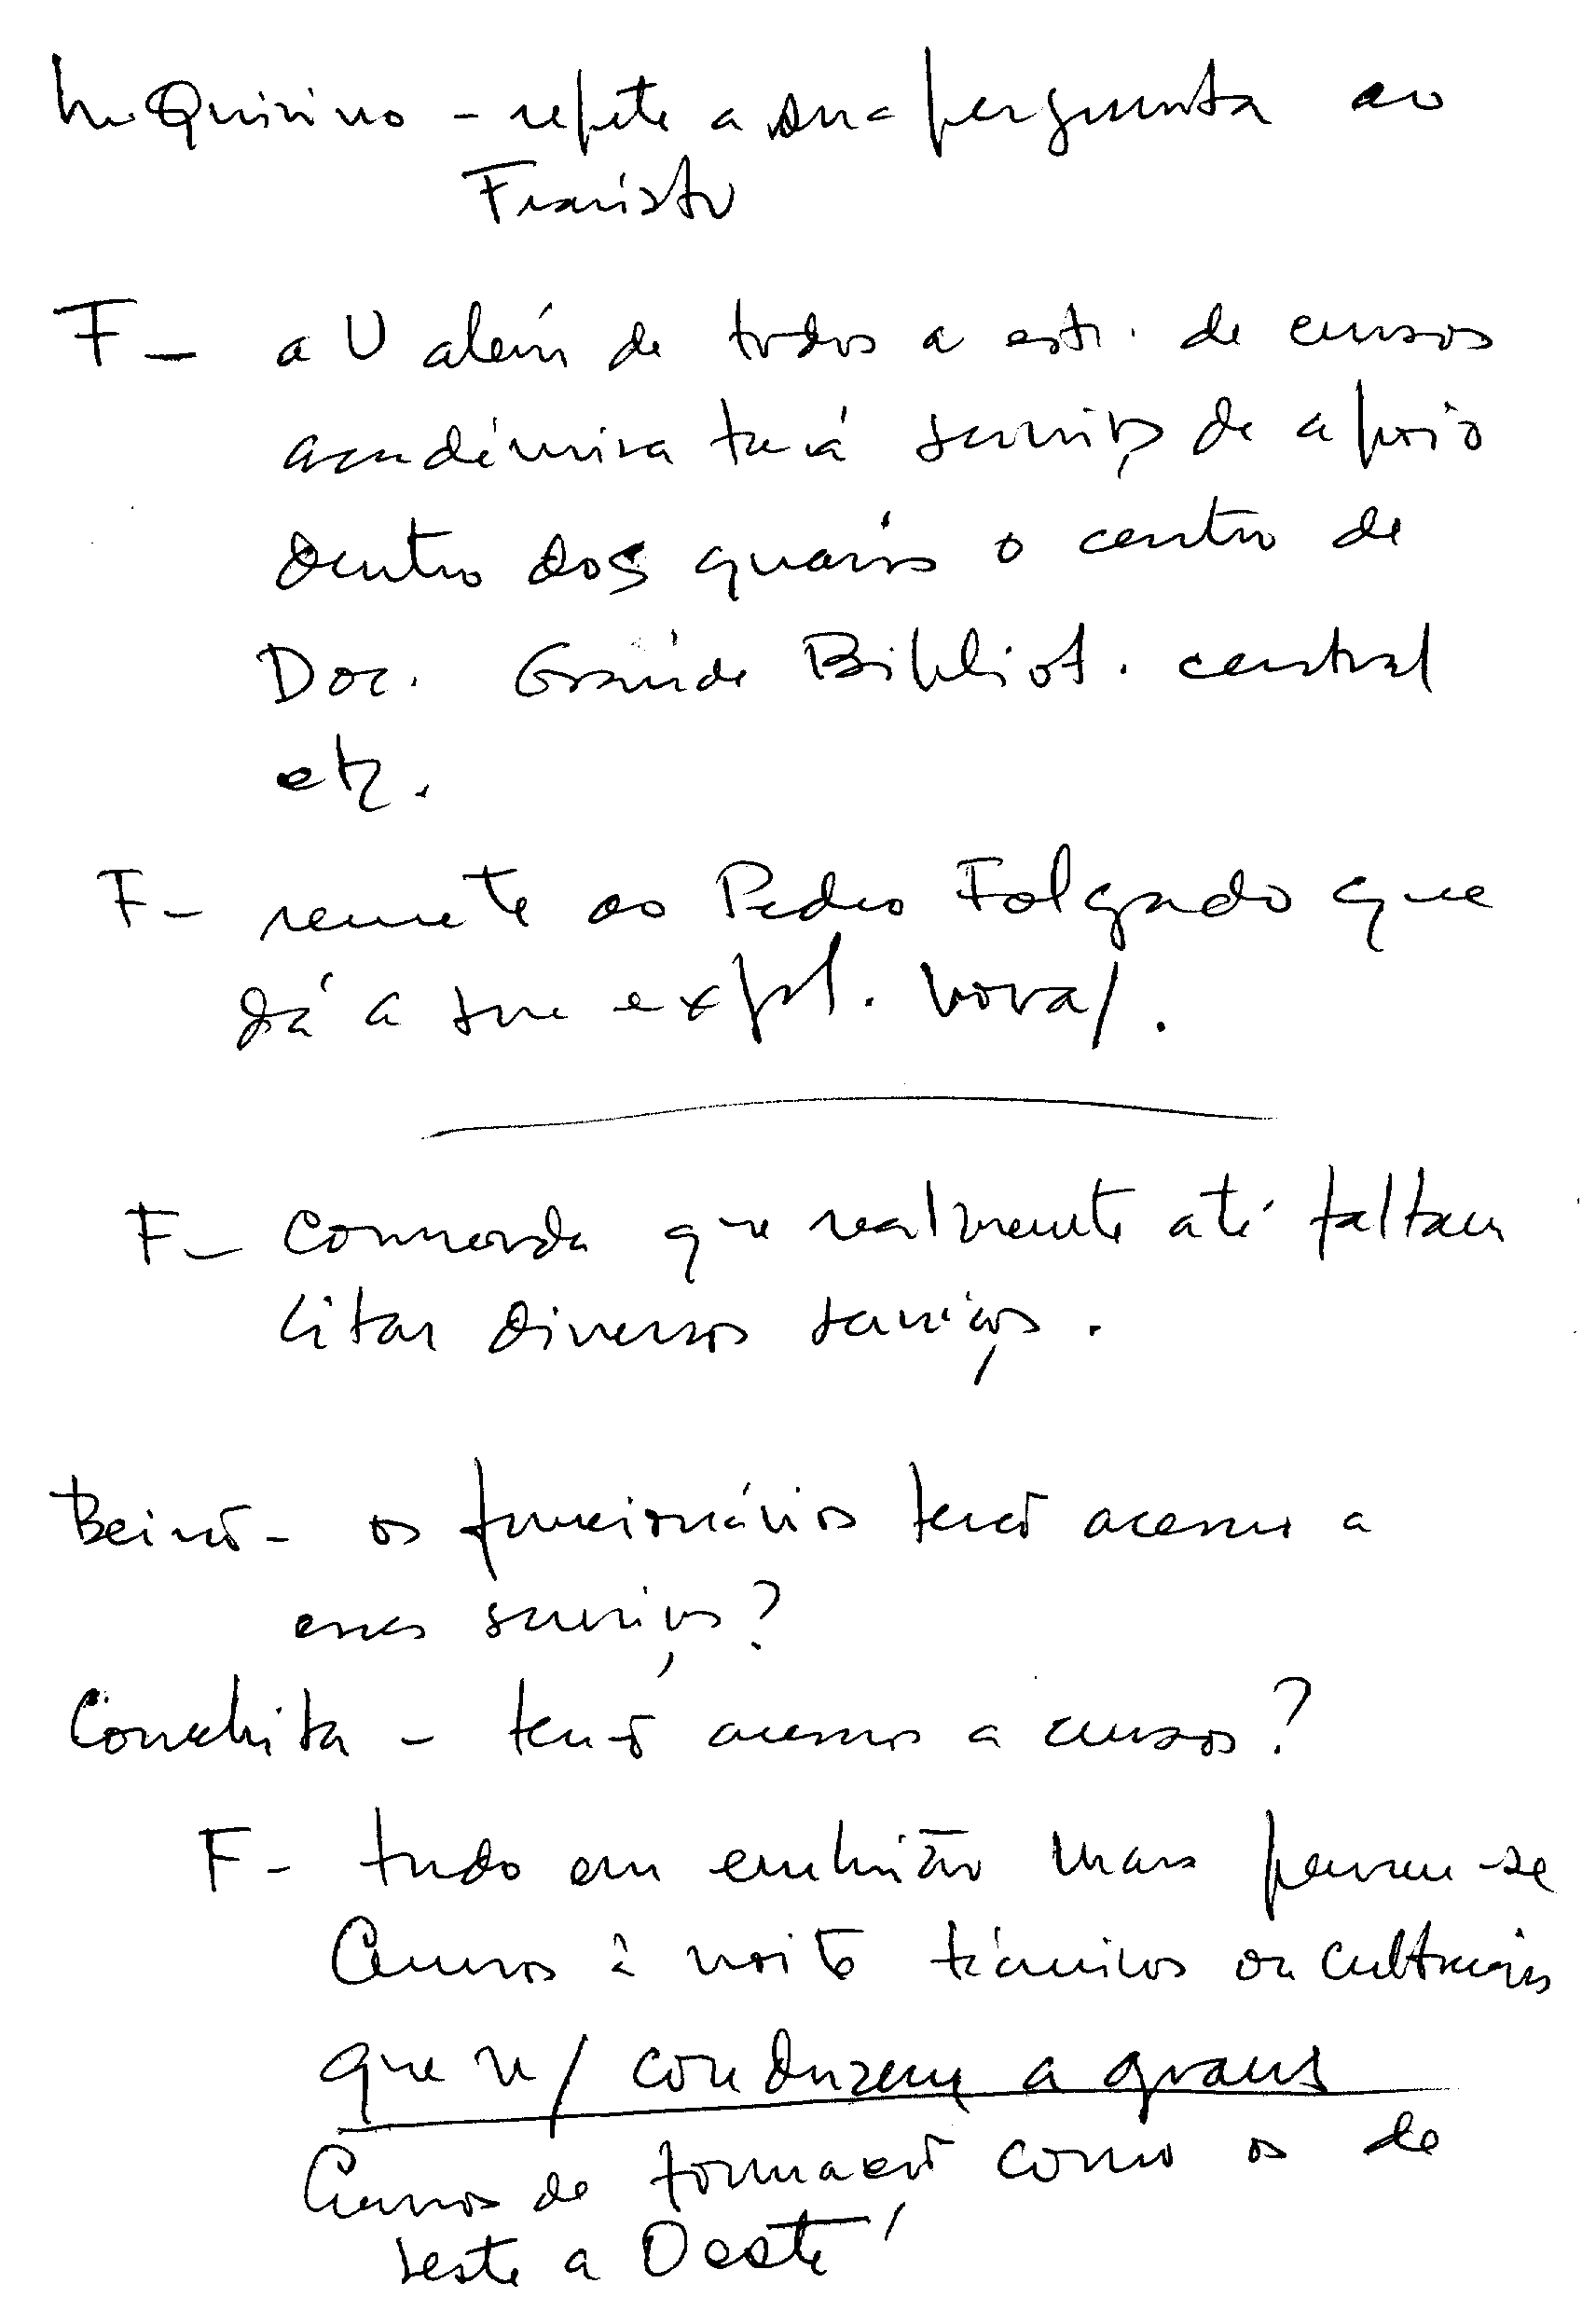 Quirino - repete a sua pergunta ao
Fraústo
F - a U além de todos a estr. de cursos
académica terá serviços de apoio
dentro dos quais o centro de
Doc. Grande Bibliot. central
etc.
F - remete ao Pedro Folgado que
dá a sua expl. nova/.
F - Concorda que realmente até faltam
citar diversos serviços.
Beirão - os funcionários terão acesso a
esses serviços?
Conchita - terão acesso a cursos?
F - tudo em embrião mas pensou-se
Cursos à noite técnicos ou culturais
que n/ conduzem a graus
Cursos de formação como os de
Leste a Oeste